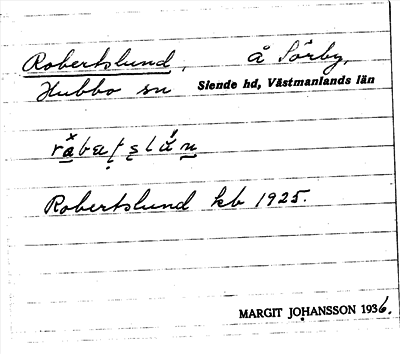 Robertslund, å Sörby,
Hubbo sn Siende hd, Västmanlands län
Robertslund kb 1925.
MARGIT JOHANSSON 1936.